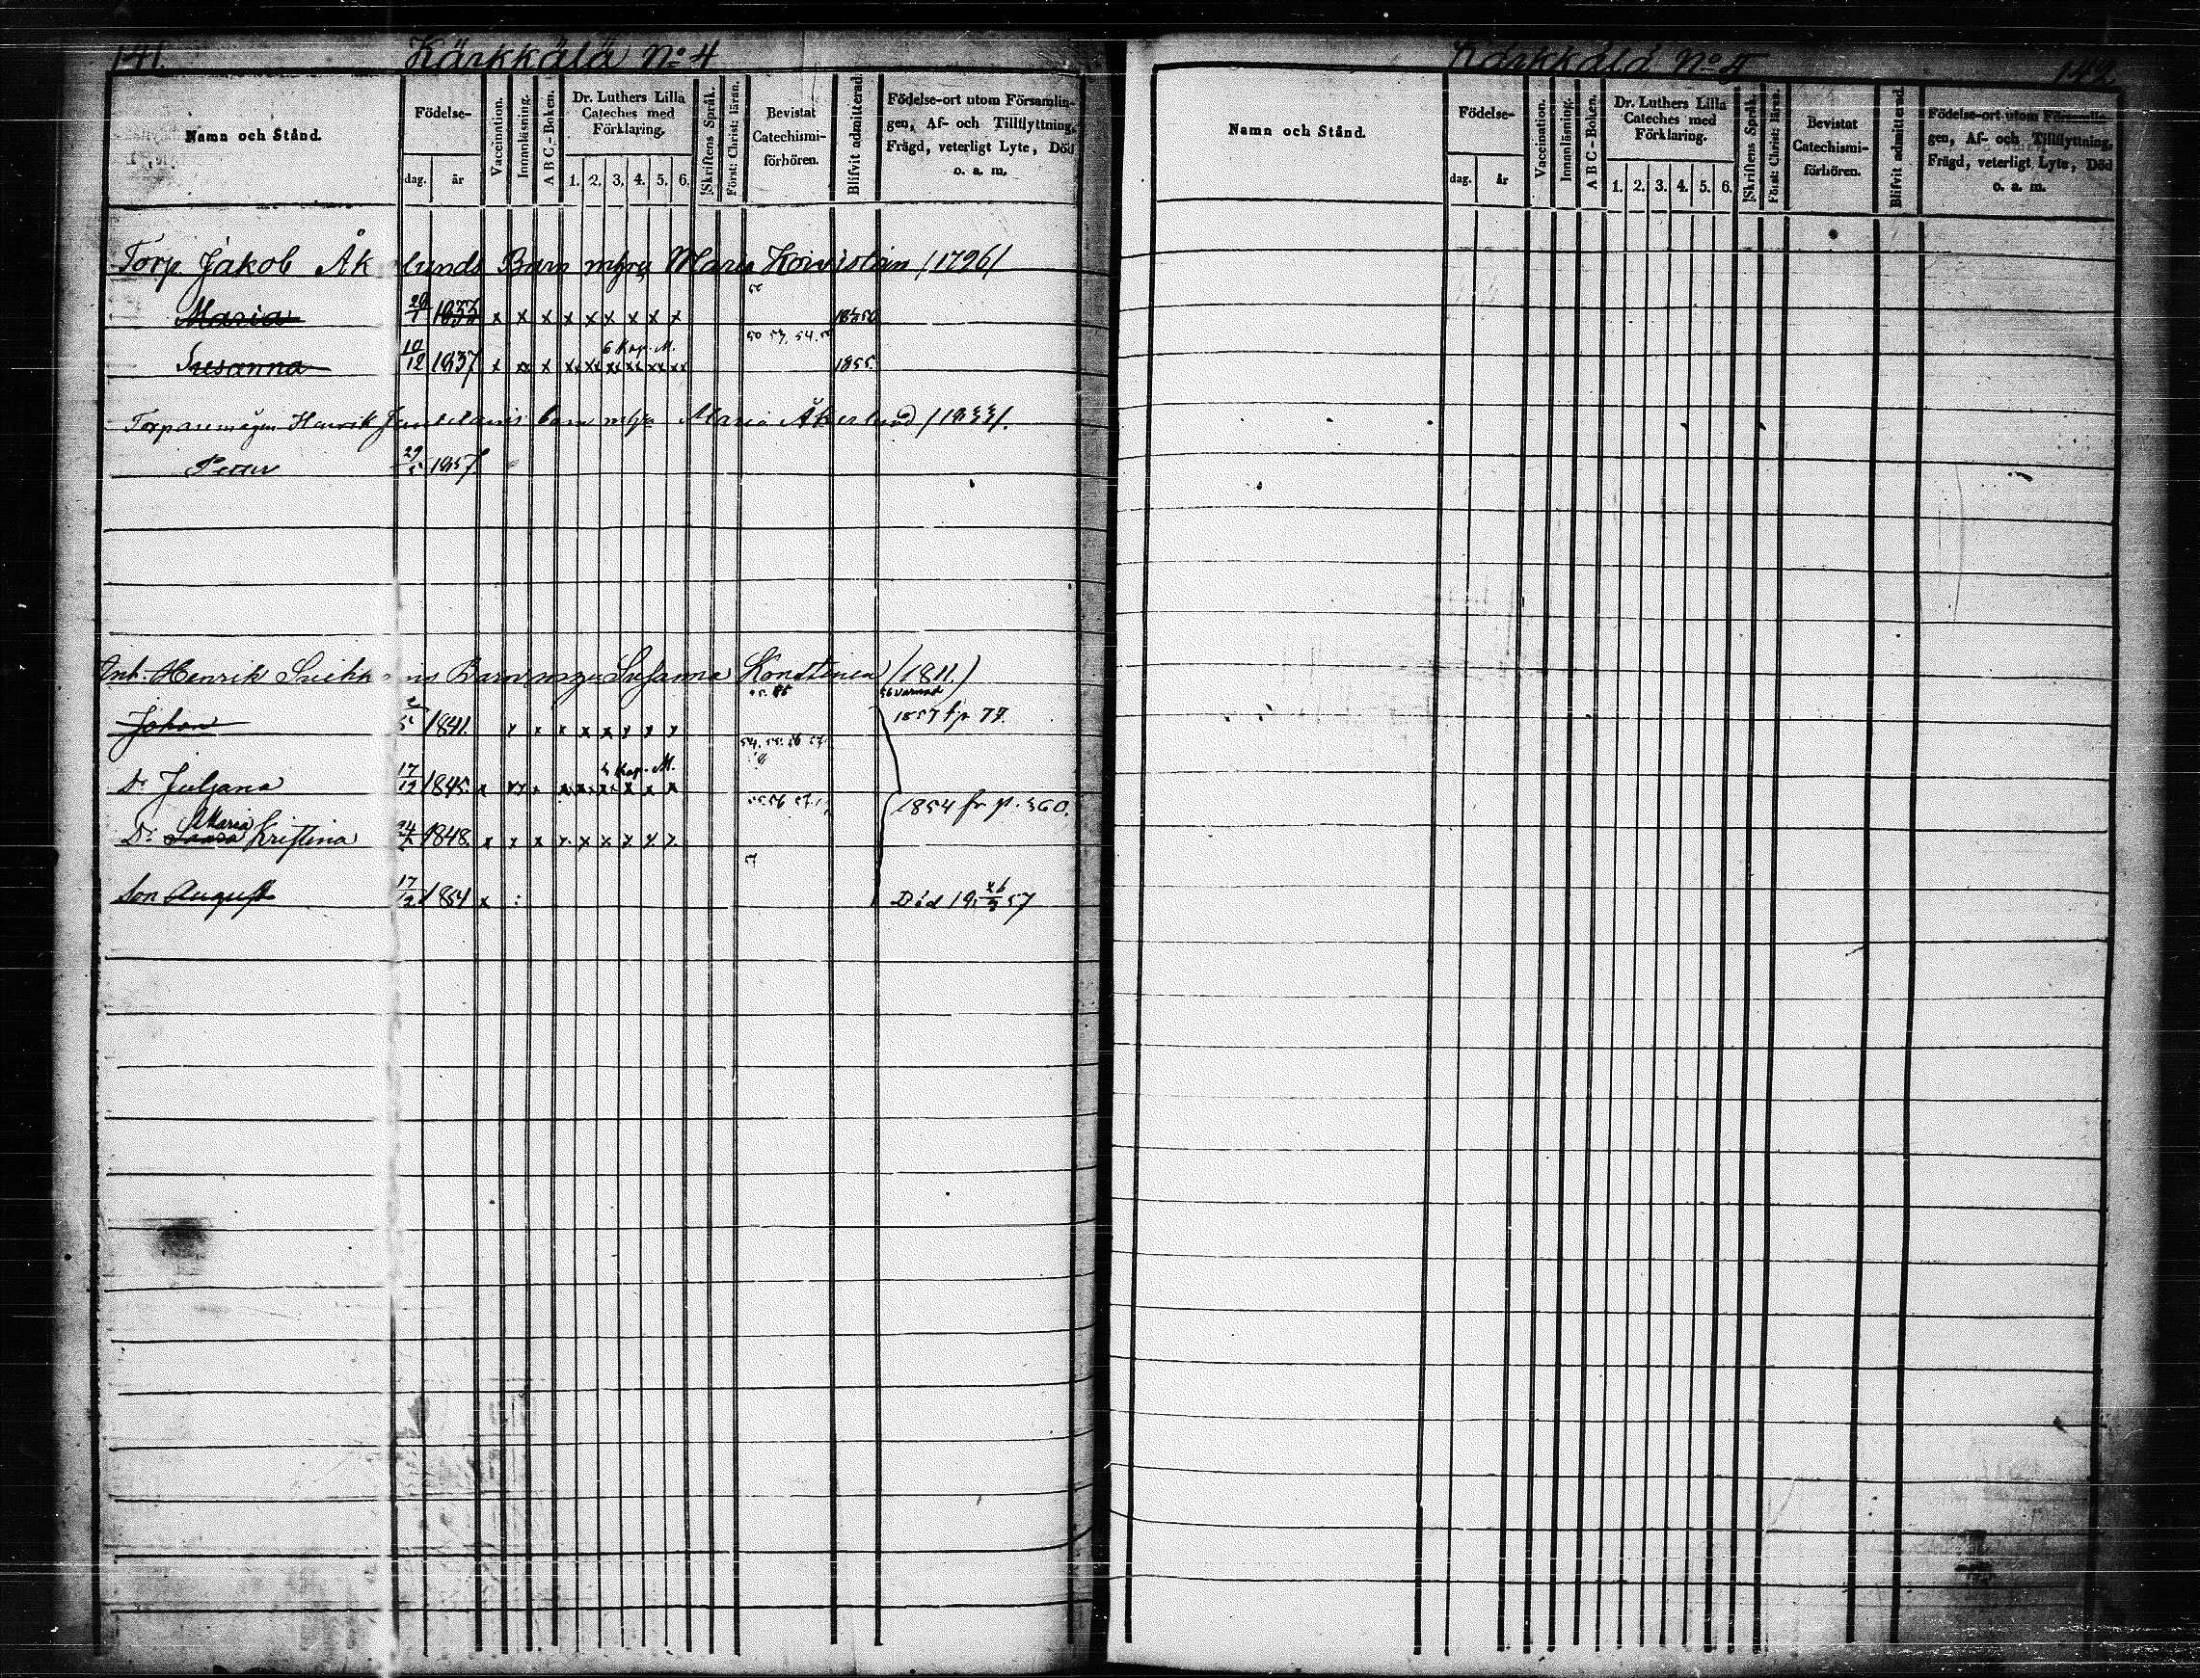 141.
Kärkkälä No 4
Namn och Stånd.
Födelse-
dag.
år
Vaccination.
Innanläsning.
A B C-Boken.
Dr. Luthers Lilla
Cateches med
Förklaring.
1. 2. 3. 4. 5. 6.
Skriftens Språk.
Först: Christ: läran.
Bevistat
Catechismi-
förhören.
Blifvit admitterad.
Födelse-ort utom Församlin-
gen, Af- och Tillflyttning,
Frägd, veterligt Lyte, Död
o. a. m.
Torp Jakob Åk lunds Barn Maria (1796)
Maria 1833 x x x x x x x x x
6 Kap. M.
Susanna 10/12 1837 x xx x xx xx xx xx xx xx 1855.
Henrik barn Maria Åkerlund (1833).
Petter 29/5 1857
Inh. Henrik Barn Susanna (1811.)
56 varnad
Johan 2/5 1841. x x x x x x x x 1857 fr p 77.
54. 55. 56 57.
Kap. M.
Dr Juljana 17/12 1845. x xx x xx xx xx x x x
1854 fr p. 360.
Maria
Dr. Kristina 24/4 1848. x x x x x x x x x
57
Son August 17/2 1854 x : Död 57
Kärkkälä No 4
142
Namn och Stånd.
Födelse-
dag.
år
Vaccination.
Innanläsning.
A B C-Boken.
Dr. Luthers Lilla
Cateches med
Förklaring.
1. 2. 3. 4. 5. 6.
Skriftens Språk.
Först: Christ: läran.
Bevistat
Catechismi-
förhören.
Blifvit admitterad.
Födelse-ort utom Församlin-
gen, Af- och Tillflyttning,
Frägd, veterligt Lyte, Död
o. a. m.